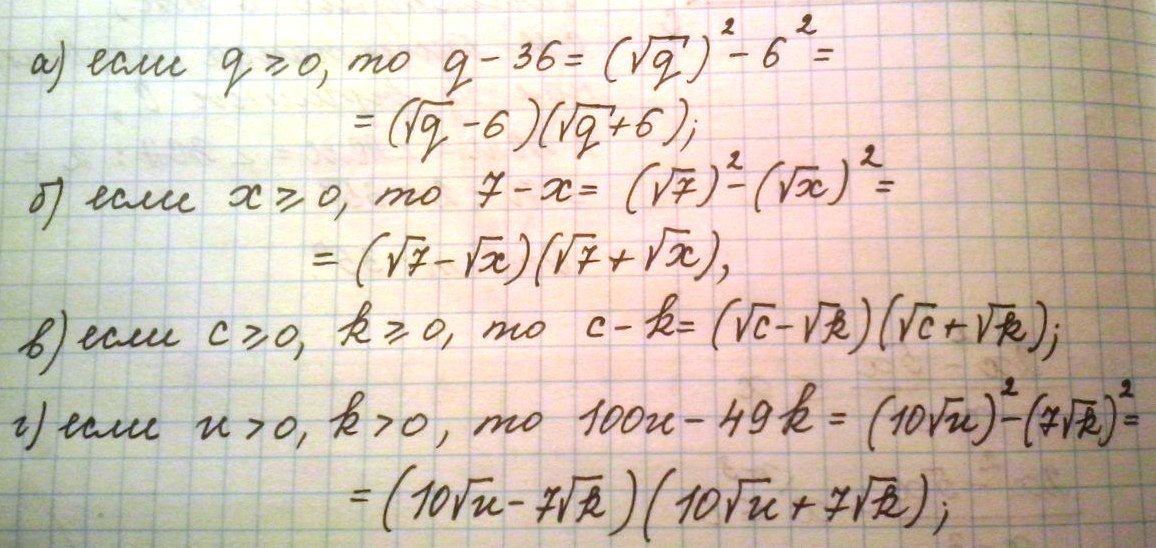 а) если q ⩾ 0, то q - 36 = (√q)² - 6² =
= (√q - 6)(√q + 6);
б) если x ⩾ 0, то 7 - x = (√7)² - (√x)² =
= (√7 - √x)(√7 + √x),
в) если c ⩾ 0, k ⩾ 0, то c - k = (√c - √k)(√c + √k);
г) если и > 0, k > 0, то 100и - 49k = (10√и)² - (7√k)² =
= (10√и - 7√k)(10√и + 7√k);